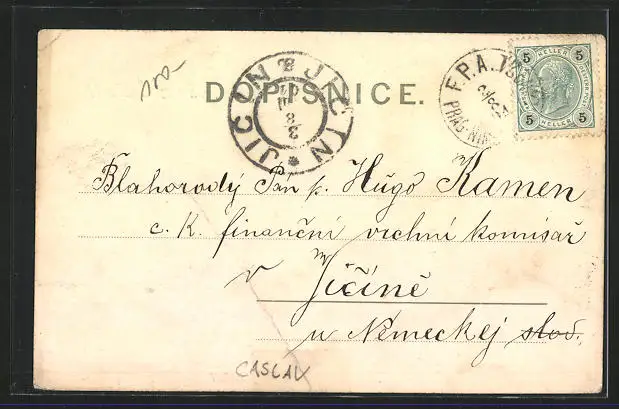 DOPISNICE.
JIČÍN JIČÍN
F.P.A.
5 HELLER 5
5 HELLER 5
Blahorodý Pan p. Hugo Kamen
c. K. finanční vrchní komisař
v Jičíně
u Německej
CASLAV